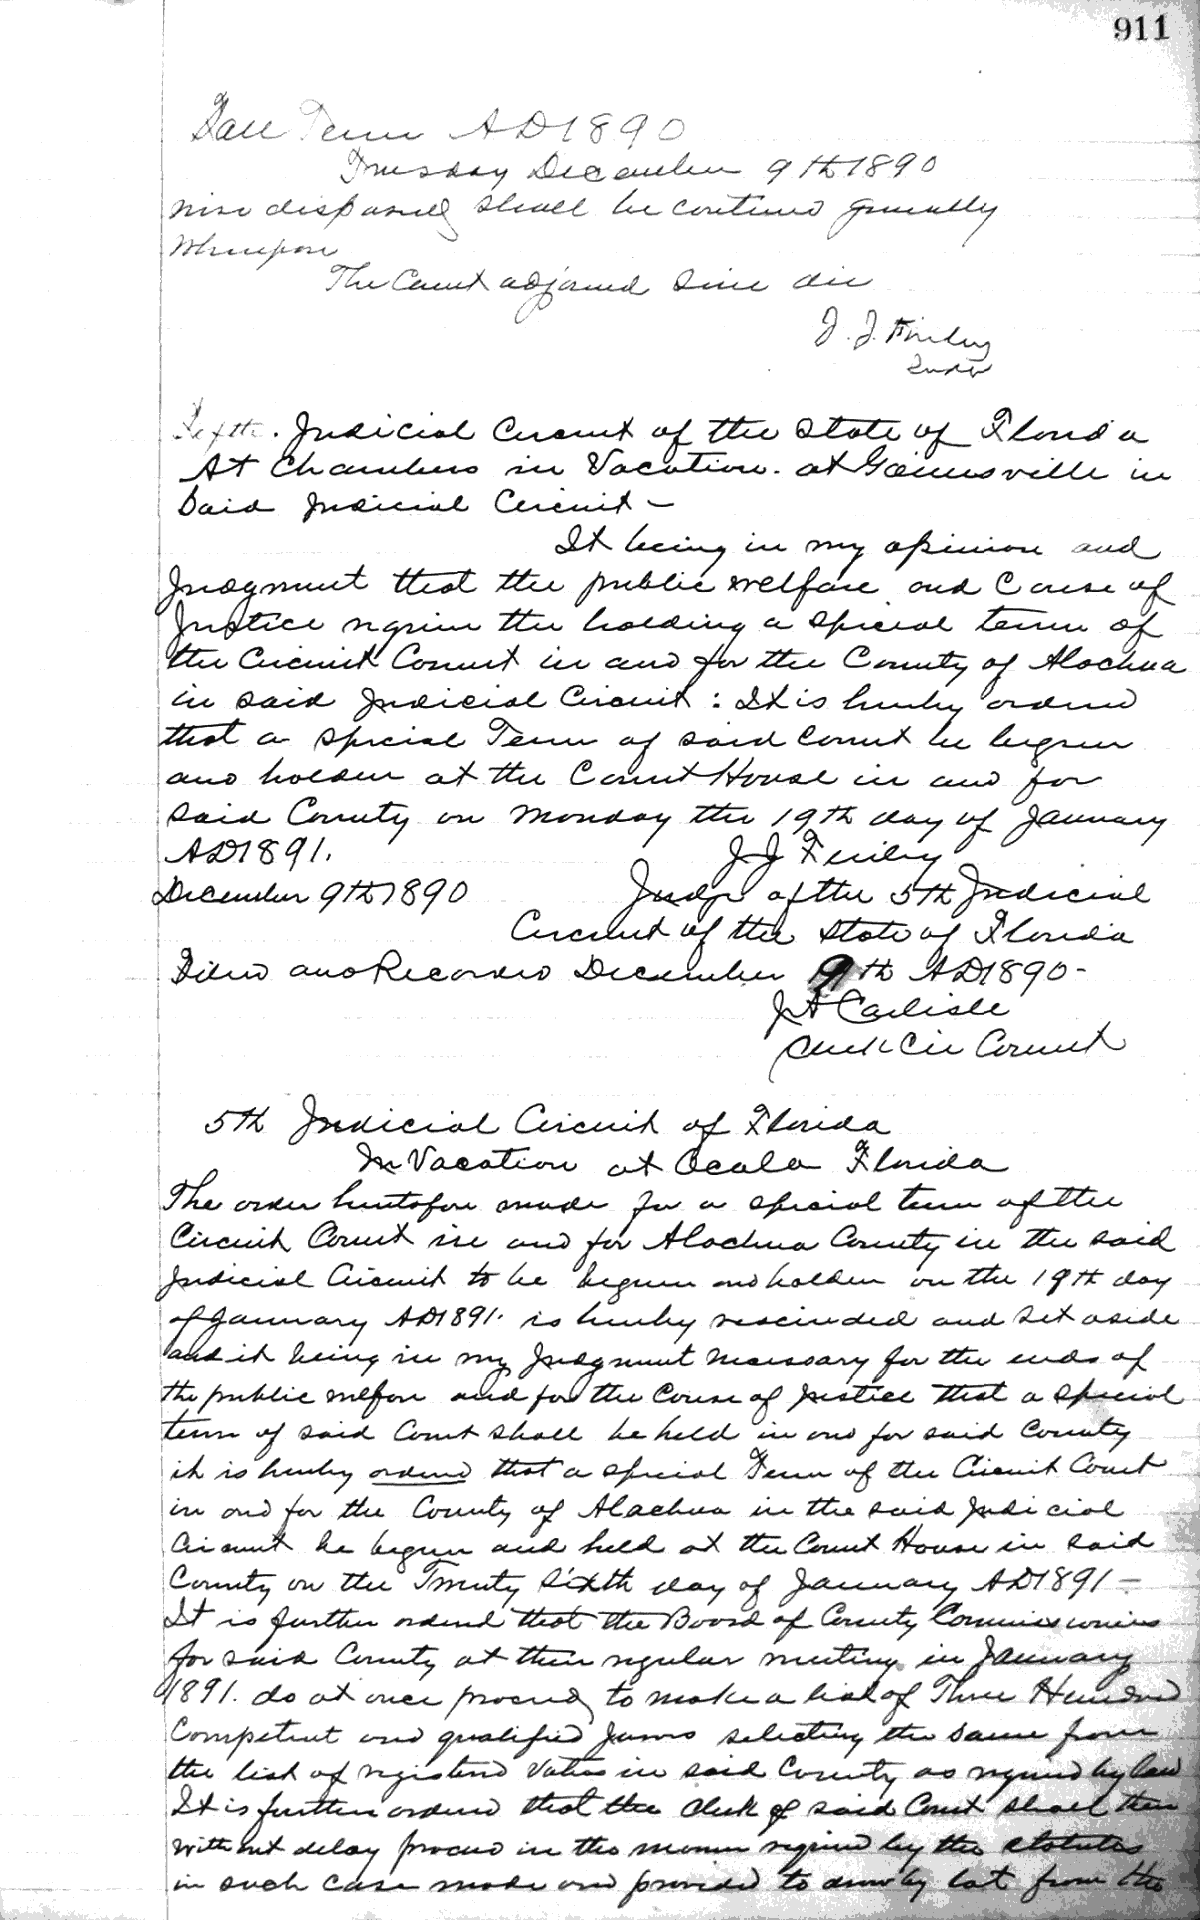 911
Fall Term AD 1890
Tuesday December 9th 1890
disposed shall be continued generally
Whereupon
The Court adjorned Sine die
J. J. Finley
Judge
Fifth. Judicial Circuit of the State of Florida
At Chambers in Vacation. at Gainesville in
Said Judicial Circuit —
It being in my opinion and
Judgment that the public welfare and Cause of
Justice require the holding a special term of
the Circuit Court in and for the County of Alachua
in said Judicial Circuit: It is hereby ordered
that a special Term of said Court be begun
and holden at the Court House in and for
said County on Monday the 19th day of January
AD 1891.
J J Finley
December 9th 1890
Judge of the 5th Judicial
Circuit of the State of Florida
Filed and Recorded December 9th AD 1890-
J A Carlisle
Clerk Cir Court
5th Judicial Circuit of Florida
In Vacation at Ocala Florida
The order heretofore made for a special term of the
Circuit Court in and for Alachua County in the said
Judicial Circuit to be begun and holden on the 19th day
of January AD 1891. is hereby rescinded and set aside
and it being in my Judgment necessary for the ends of
the public welfare and for the Cause of justice that a special
term of said Court shall be held in and for said County
it is hereby ordered that a special Term of the Circuit Court
in and for the County of Alachua in the said Judicial
Circuit be begun and held at the Court House in said
County on the Twenty Sixth day of January AD 1891 —
It is further ordered that the Board of County Commissioners
for said County at their regular meeting in January
1891. do at once proceed to make a list of Three Hundred
Competent and qualified Jurors selecting the same from
the list of registered Voters in said County as required by law
It is further ordered that the clerk of said Court shall then
without delay proceed in the manner required by the statutes
in such case made and provided to draw by lot from the